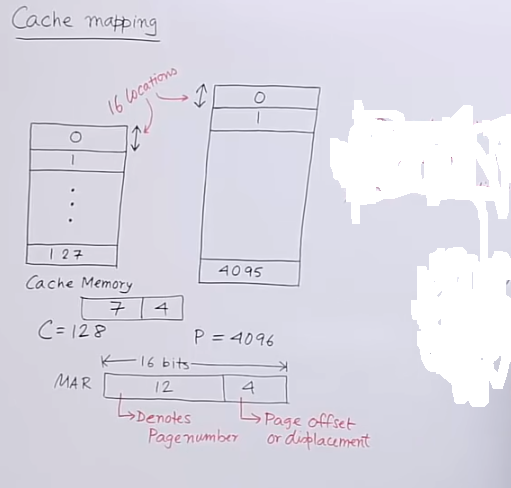 Cache mapping
16 locations
0
1
127
Cache Memory
7 4
C = 128
0
1
4095
P = 4096
16 bits
MAR 12 4
Denotes
Page number
Page offset
or displacement